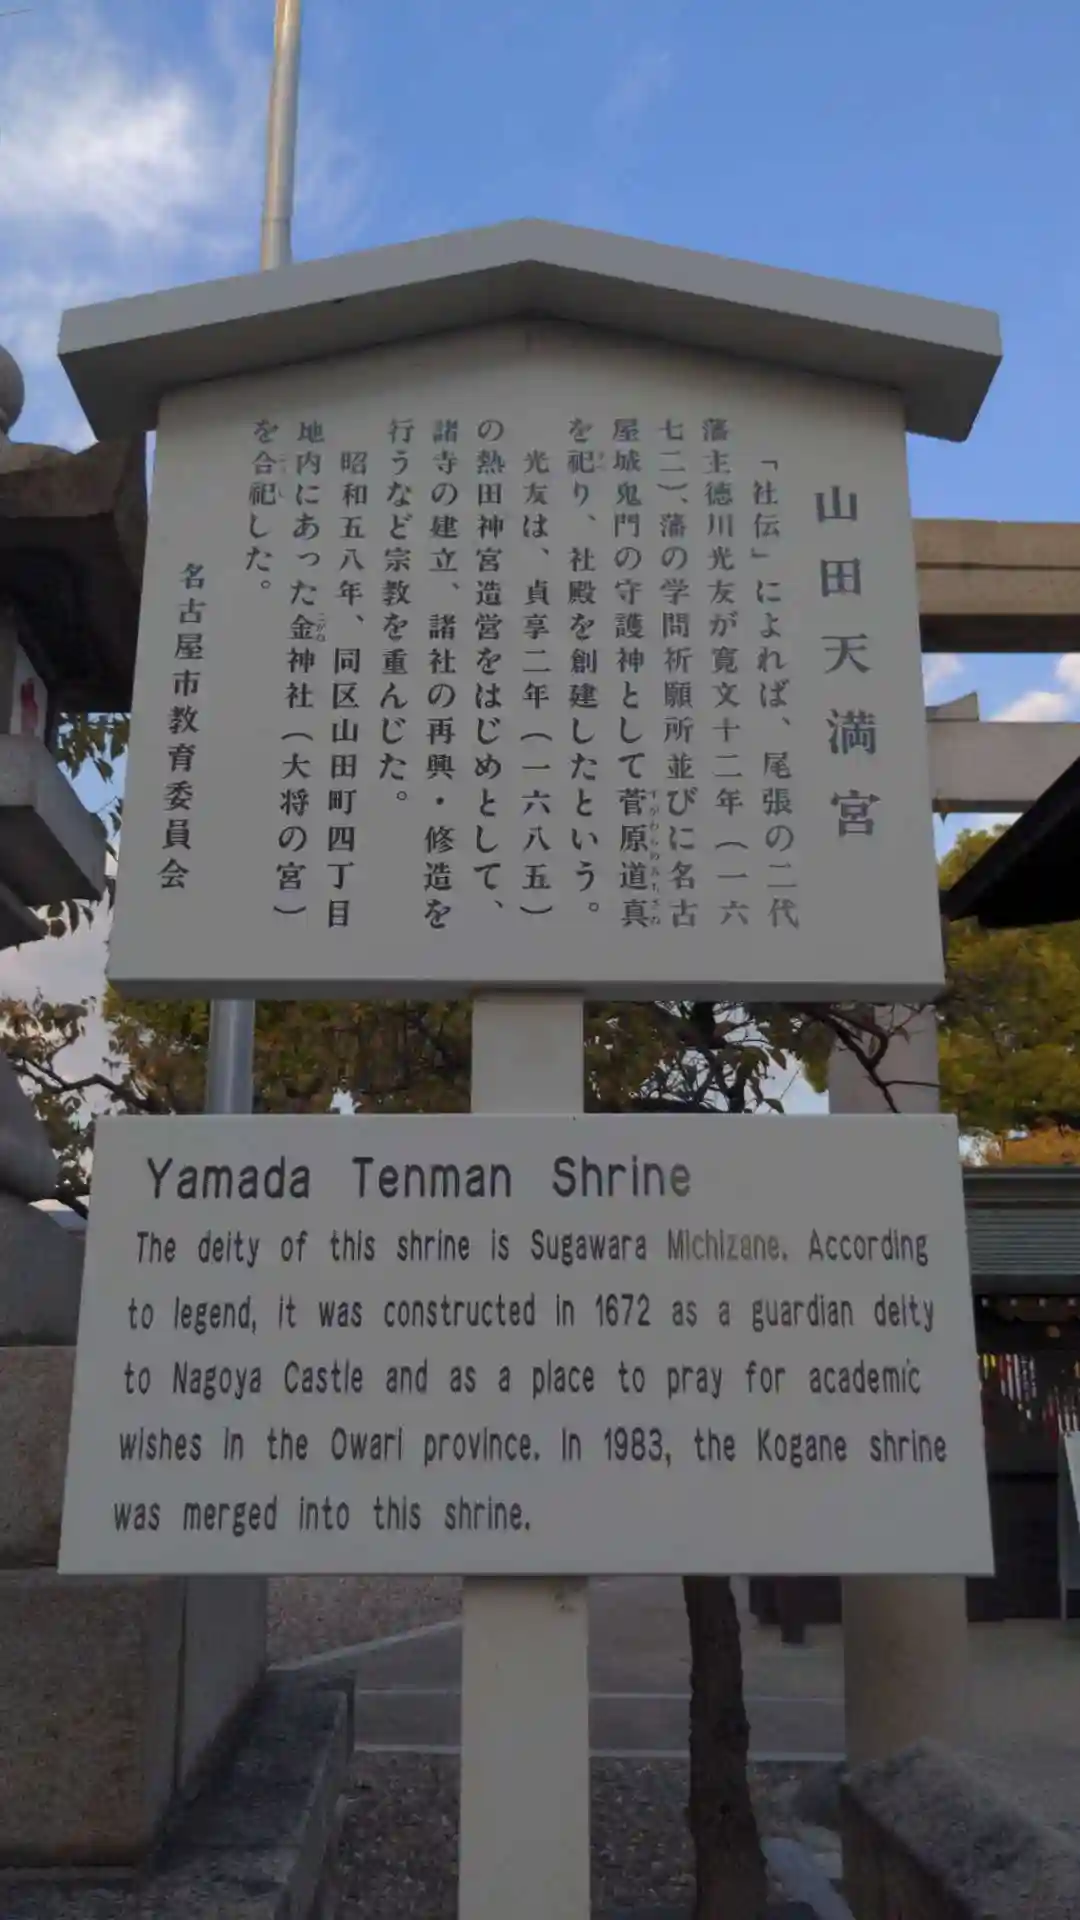 山田天満宮
「社伝」によれば、尾張の二代
藩主徳川光友が寛文十二年（一六
七二）、藩の学問祈願所並びに名古
屋城鬼門の守護神として菅原道真
を祀り、社殿を創建したという。
光友は、貞享二年（一六八五）
の熱田神宮造営をはじめとして、
諸寺の建立、諸社の再興・修造を
行うなど宗教を重んじた。
昭和五八年、同区山田町四丁目
地内にあった金神社（大将の宮）
を合祀した。
名古屋市教育委員会
Yamada Tenman Shrine
The deity of this shrine is Sugawara Michizane. According
to legend, it was constructed in 1672 as a guardian deity
to Nagoya Castle and as a place to pray for academic
wishes in the Owari province. In 1983, the Kogane shrine
was merged into this shrine.